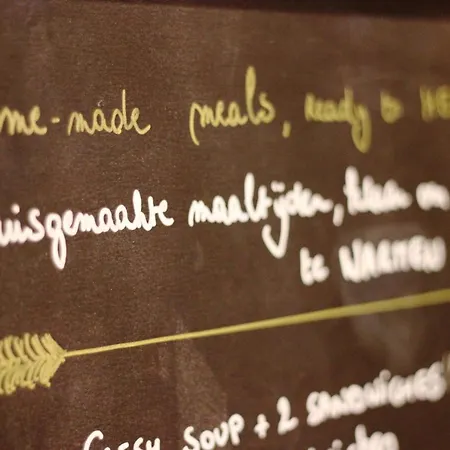 me-made meals, ready to HE
uisgemaakte maaltijden, klaar om
te WARMEN
FRESH SOUP + 2 SANDWICHES